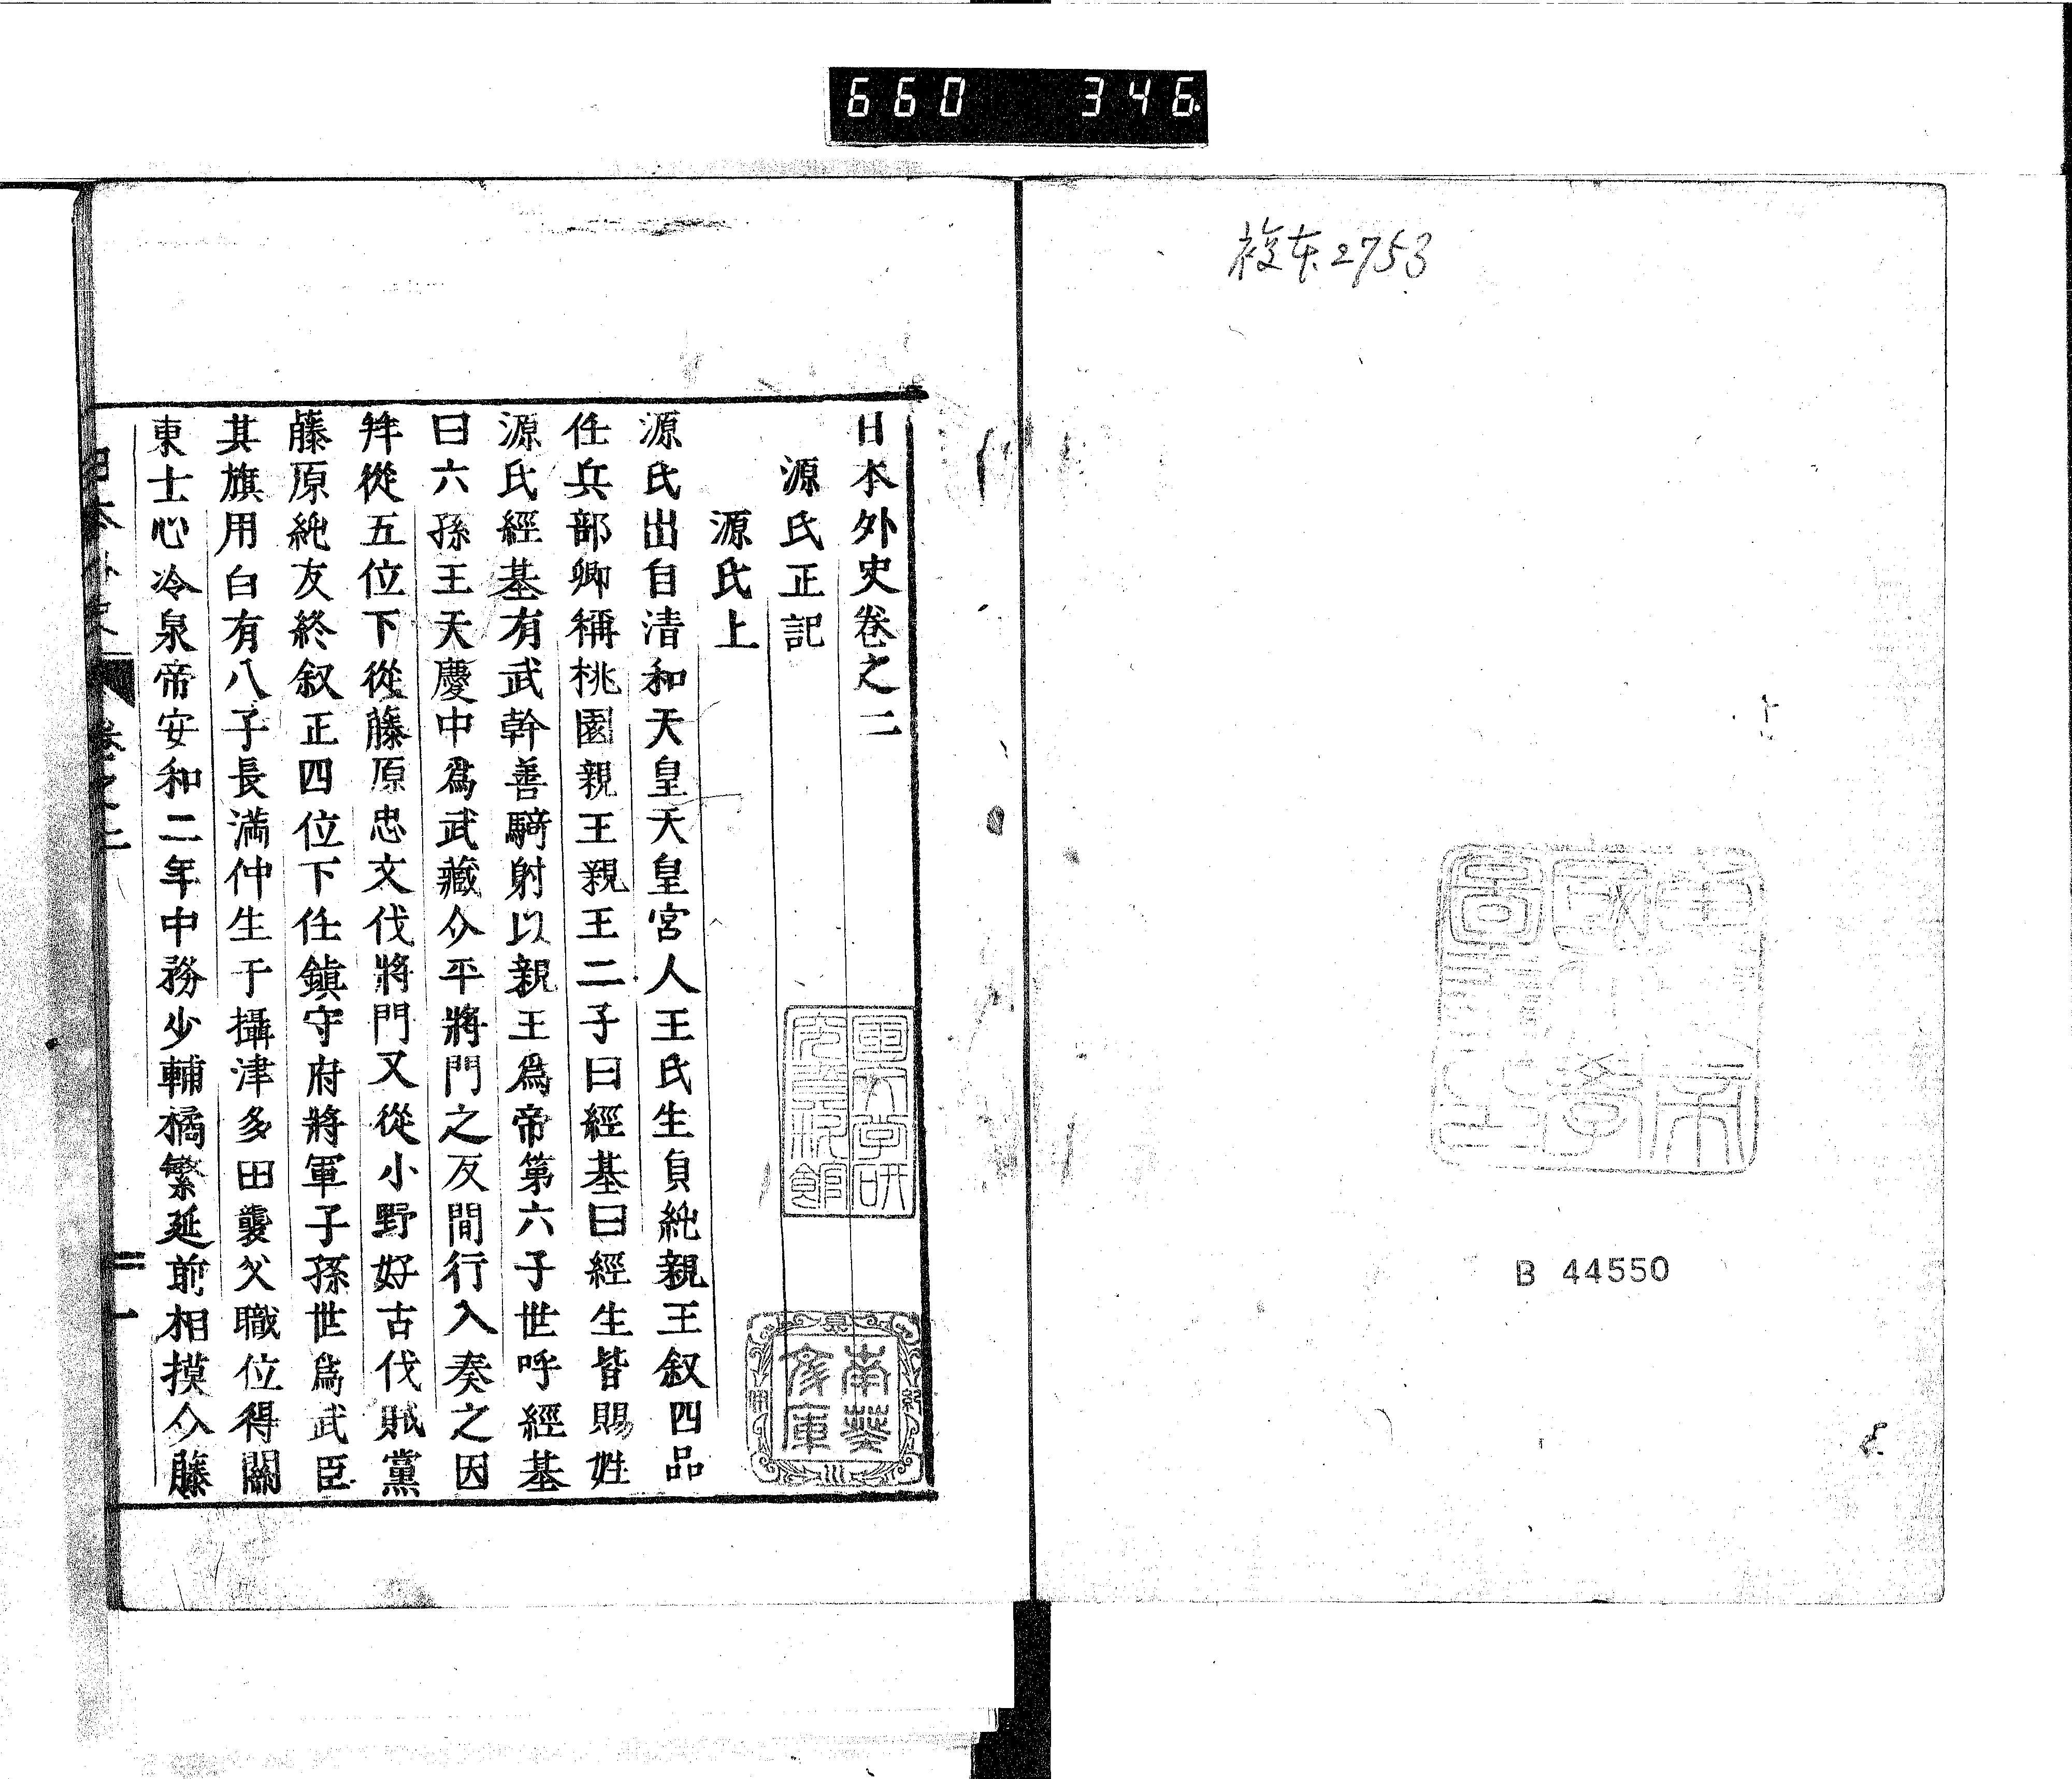 660 346
複東2753
B 44550
日本外史卷之二
源氏正記
源氏上
源氏出自清和天皇天皇宮人王氏生貞純親王叙四品
任兵部卿稱桃園親王親王二子曰經基曰經生皆賜姓
源氏經基有武幹善騎射以親王爲帝第六子世呼經基
曰六孫王天慶中爲武藏介平將門之反間行入奏之因
幷從五位下從藤原忠文伐將門又從小野好古伐賊黨
藤原純友終叙正四位下任鎭守府將軍子孫世爲武臣
其旗用白有八子長滿仲生于攝津多田襲父職位得關
東士心冷泉帝安和二年中務少輔橘繁延前相摸介藤
日本外史
卷之二
一
南葵文庫